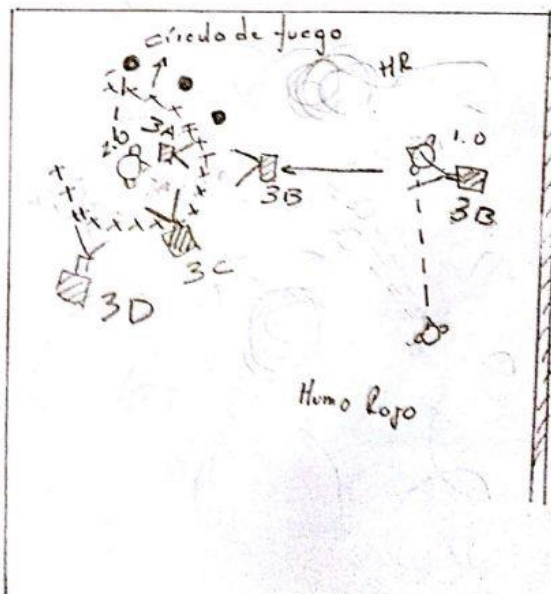 círculo de fuego
HR
3A
1.0
1.0
3B
3B
3C
3D
Humo Rojo